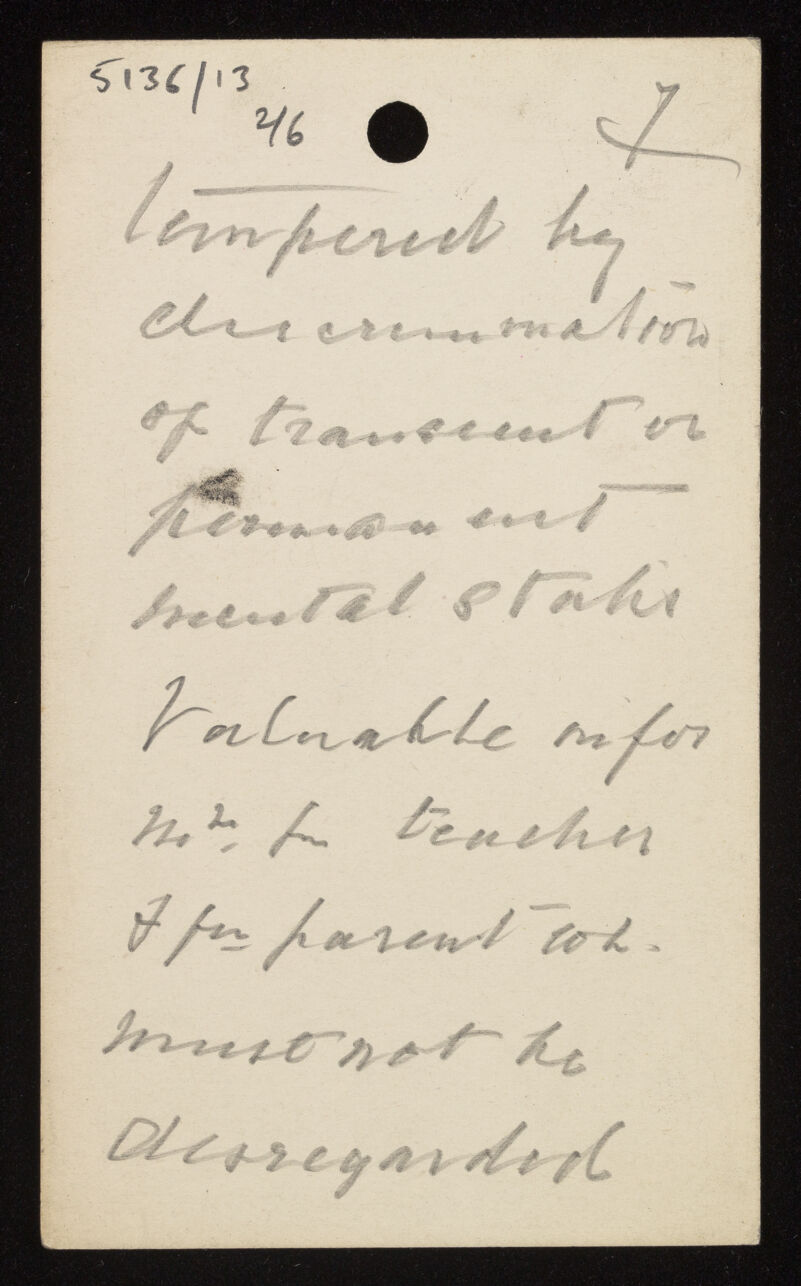 5136/13
2/6
7
tempered by
discrimination
of transient or
permanent
mental state
Valuable infor
m'n. fm teacher
& fm parent wh.
must not be
disregarded